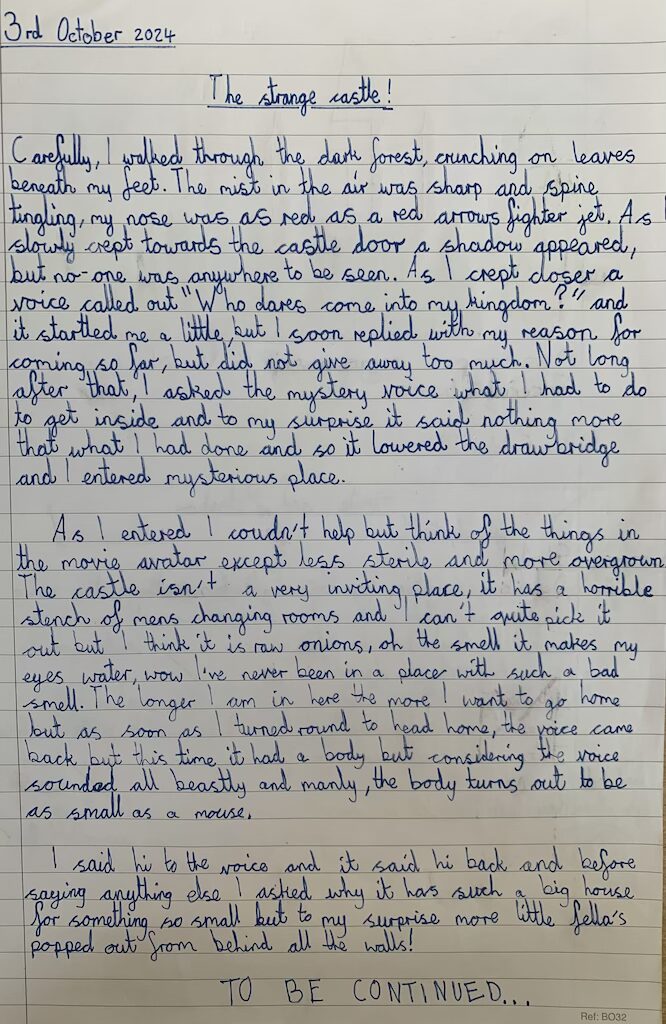 3rd October 2024
The strange castle!
Carefully, I walked through the dark forest, crunching on leaves
beneath my feet. The mist in the air was sharp and spine
tingling, my nose was as red as a red arrows fighter jet. As I
slowly crept towards the castle door a shadow appeared,
but no-one was anywhere to be seen. As I crept closer a
voice called out "Who dares come into my kingdom?" and
it startled me a little, but I soon replied with my reason for
coming so far, but did not give away too much. Not long
after that, I asked the mystery voice what I had to do
to get inside and to my surprise it said nothing more
that what I had done and so it lowered the drawbridge
and I entered mysterious place.
As I entered I coudn't help but think of the things in
the movie avatar except less sterile and more overgrown.
The castle isn't a very inviting place, it has a horrible
stench of mens changing rooms and I can't quite pick it
out but I think it is raw onions, oh the smell it makes my
eyes water, wow I've never been in a place with such a bad
smell. The longer I am in here the more I want to go home
but as soon as I turned round to head home, the voice came
back but this time it had a body but considering the voice
sounded all beastly and manly, the body turns out to be
as small as a mouse.
I said hi to the voice and it said hi back and before
saying anything else I asked why it has such a big house
for something so small but to my surprise more little fella's
popped out from behind all the walls!
TO BE CONTINUED...
Ref: BO32